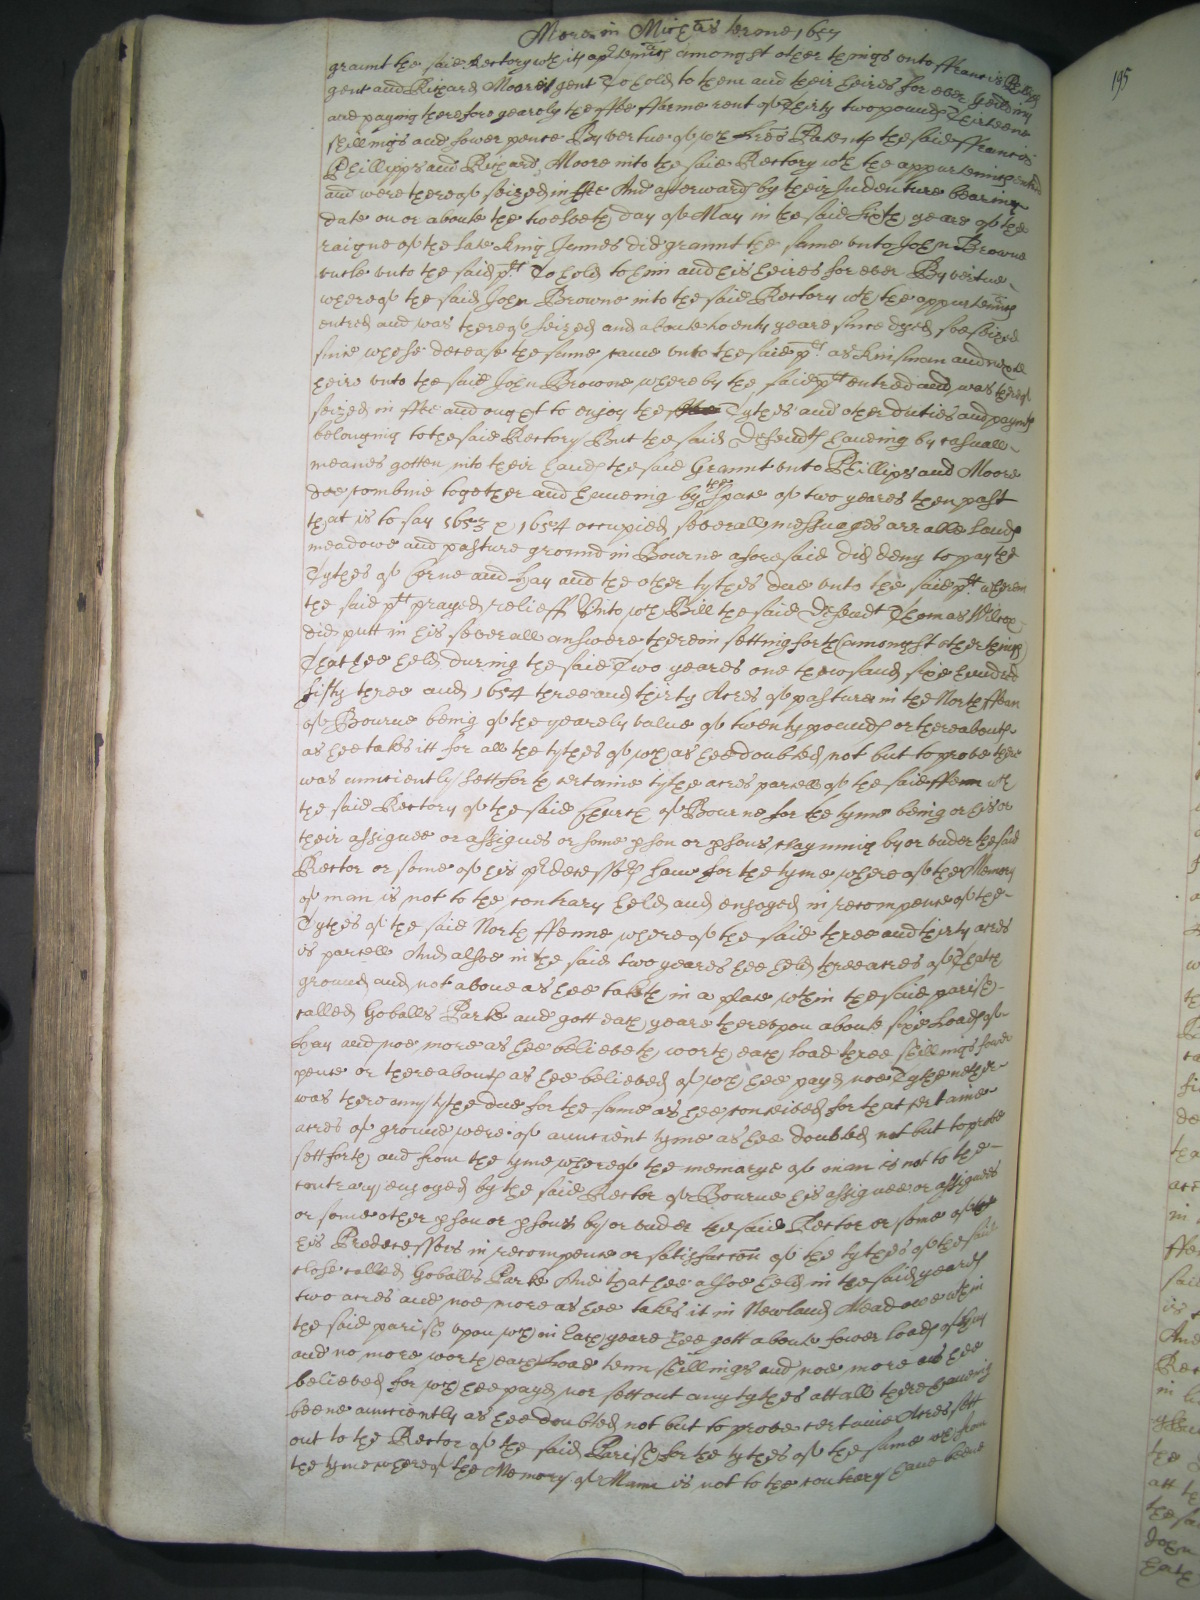 More in Micħas terme 1657
graunt the said Rectory wth its apꝑtennces amongst other things unto ffrancis Phillips
gent and Richard Moore gent To hold to them and their heires for ever yeilding
and paying therefore yearely the ffee ffarme rent of Thirty two pounds Thirteene
shillings and fower pence By vertue of wch lres Patents the said ffrancis
Phillipps and Richard Moore into the said Rectory wth the appurtennces entred
and were thereof seized in ffee And afterwards by their Indenture bearing
date on or aboute the twelveth day of May in the said sixth yeare of the
raigne of the late King James did graunt the same unto John Browne
uncle unto the said plt To hold to him and his heires for ever By vertue
whereof the said John Browne into the said Rectory wth the appurtennces
entred and was thereof seized and aboute twenty yeares since dyed soe seized
since whose decease the same came unto the said plt as kinsman and next
heire unto the said John Browne whereby the said plt entred and was thereof
seized in ffee and ought to enjoy the Tythes and other duties and paymts
belonging to the said Rectory But the said Defendts haueing by casuall
meanes gotten into their hands the said Graunt unto Phillips and Moore
doe combine together and haueing by the space of two yeares then past
that is to say 1653 & 1654 occupied severall messuages arrable lands
meadowe and pasture ground in Bourne aforesaid did deny to pay the
Tythes of Corne and Hay and the other tythes due unto the said plt wherein
the said plt prayed relieff Unto wch Bill the said Defendt Thomas Wilcox
did putt in his severall answere therein setting forth (amongst other things)
That hee held during the said Two yeares one thowsand sixe hundred
fifty three and 1654 three and thirty Acres of pasture in the North ffenn
of Bourne being of the yearely value of twenty pounds or thereabouts
as hee takes itt for all the tythes of wch as hee doubted not but to prove there
was aunciently sett forth certaine tythe acres parcell of the said ffenn wch
the said Rectory of the said Church of Bourne for the tyme being or his or
their assignee or assignes or some ꝑson or ꝑsons clayming by or under the said
Rector or some of his predecessors haue for the tyme whereof the Memory
of man is not to the contrary held and enjoyed in recompence of the
Tythes of the said North ffenne whereof the said three and thirty acres
is parcell And alsoe in the said two yeares hee held three acres of Thatch
ground and not above as hee taketh in a place wthin the said parish
called Goballs Parke and gott each yeare thereupon about sixe Loads of
Hay and noe more as hee believeth worth each load three shillings fower
pence or thereabouts as hee believed of wch hee payd noe Tythe neither
was there any tythe due for the same as hee conceived for that certaine
acres of ground were of auncient tyme as hee doubted not but to prove
sett forth and from the tyme whereof the memorye of man is not to the
contrary enjoyed by the said Rector of Bourne his assignee or assignees
or some other ꝑson or ꝑsons by or under the said Rector or some of
his Predecessors in recompence or satisfaccon of the tythes of the said
close called Goballs Parke And that hee alsoe held in the said yeares
two acres and noe more as hee takes it in Newland Meadowe wthin
the said parish upon wch in Each yeare hee gott aboute fower loads of Hay
and no more worth each Load tenn shillings and noe more as hee
believed for wch hee payd nor sett out any tythes att all there haueing
beene aunciently as hee doubted not but to prove certaine Acres sett
out to the Rector of the said Parish for the tythes of the same wch from
the tyme whereof the Memory of Mann is not to the contrary haue beene
195